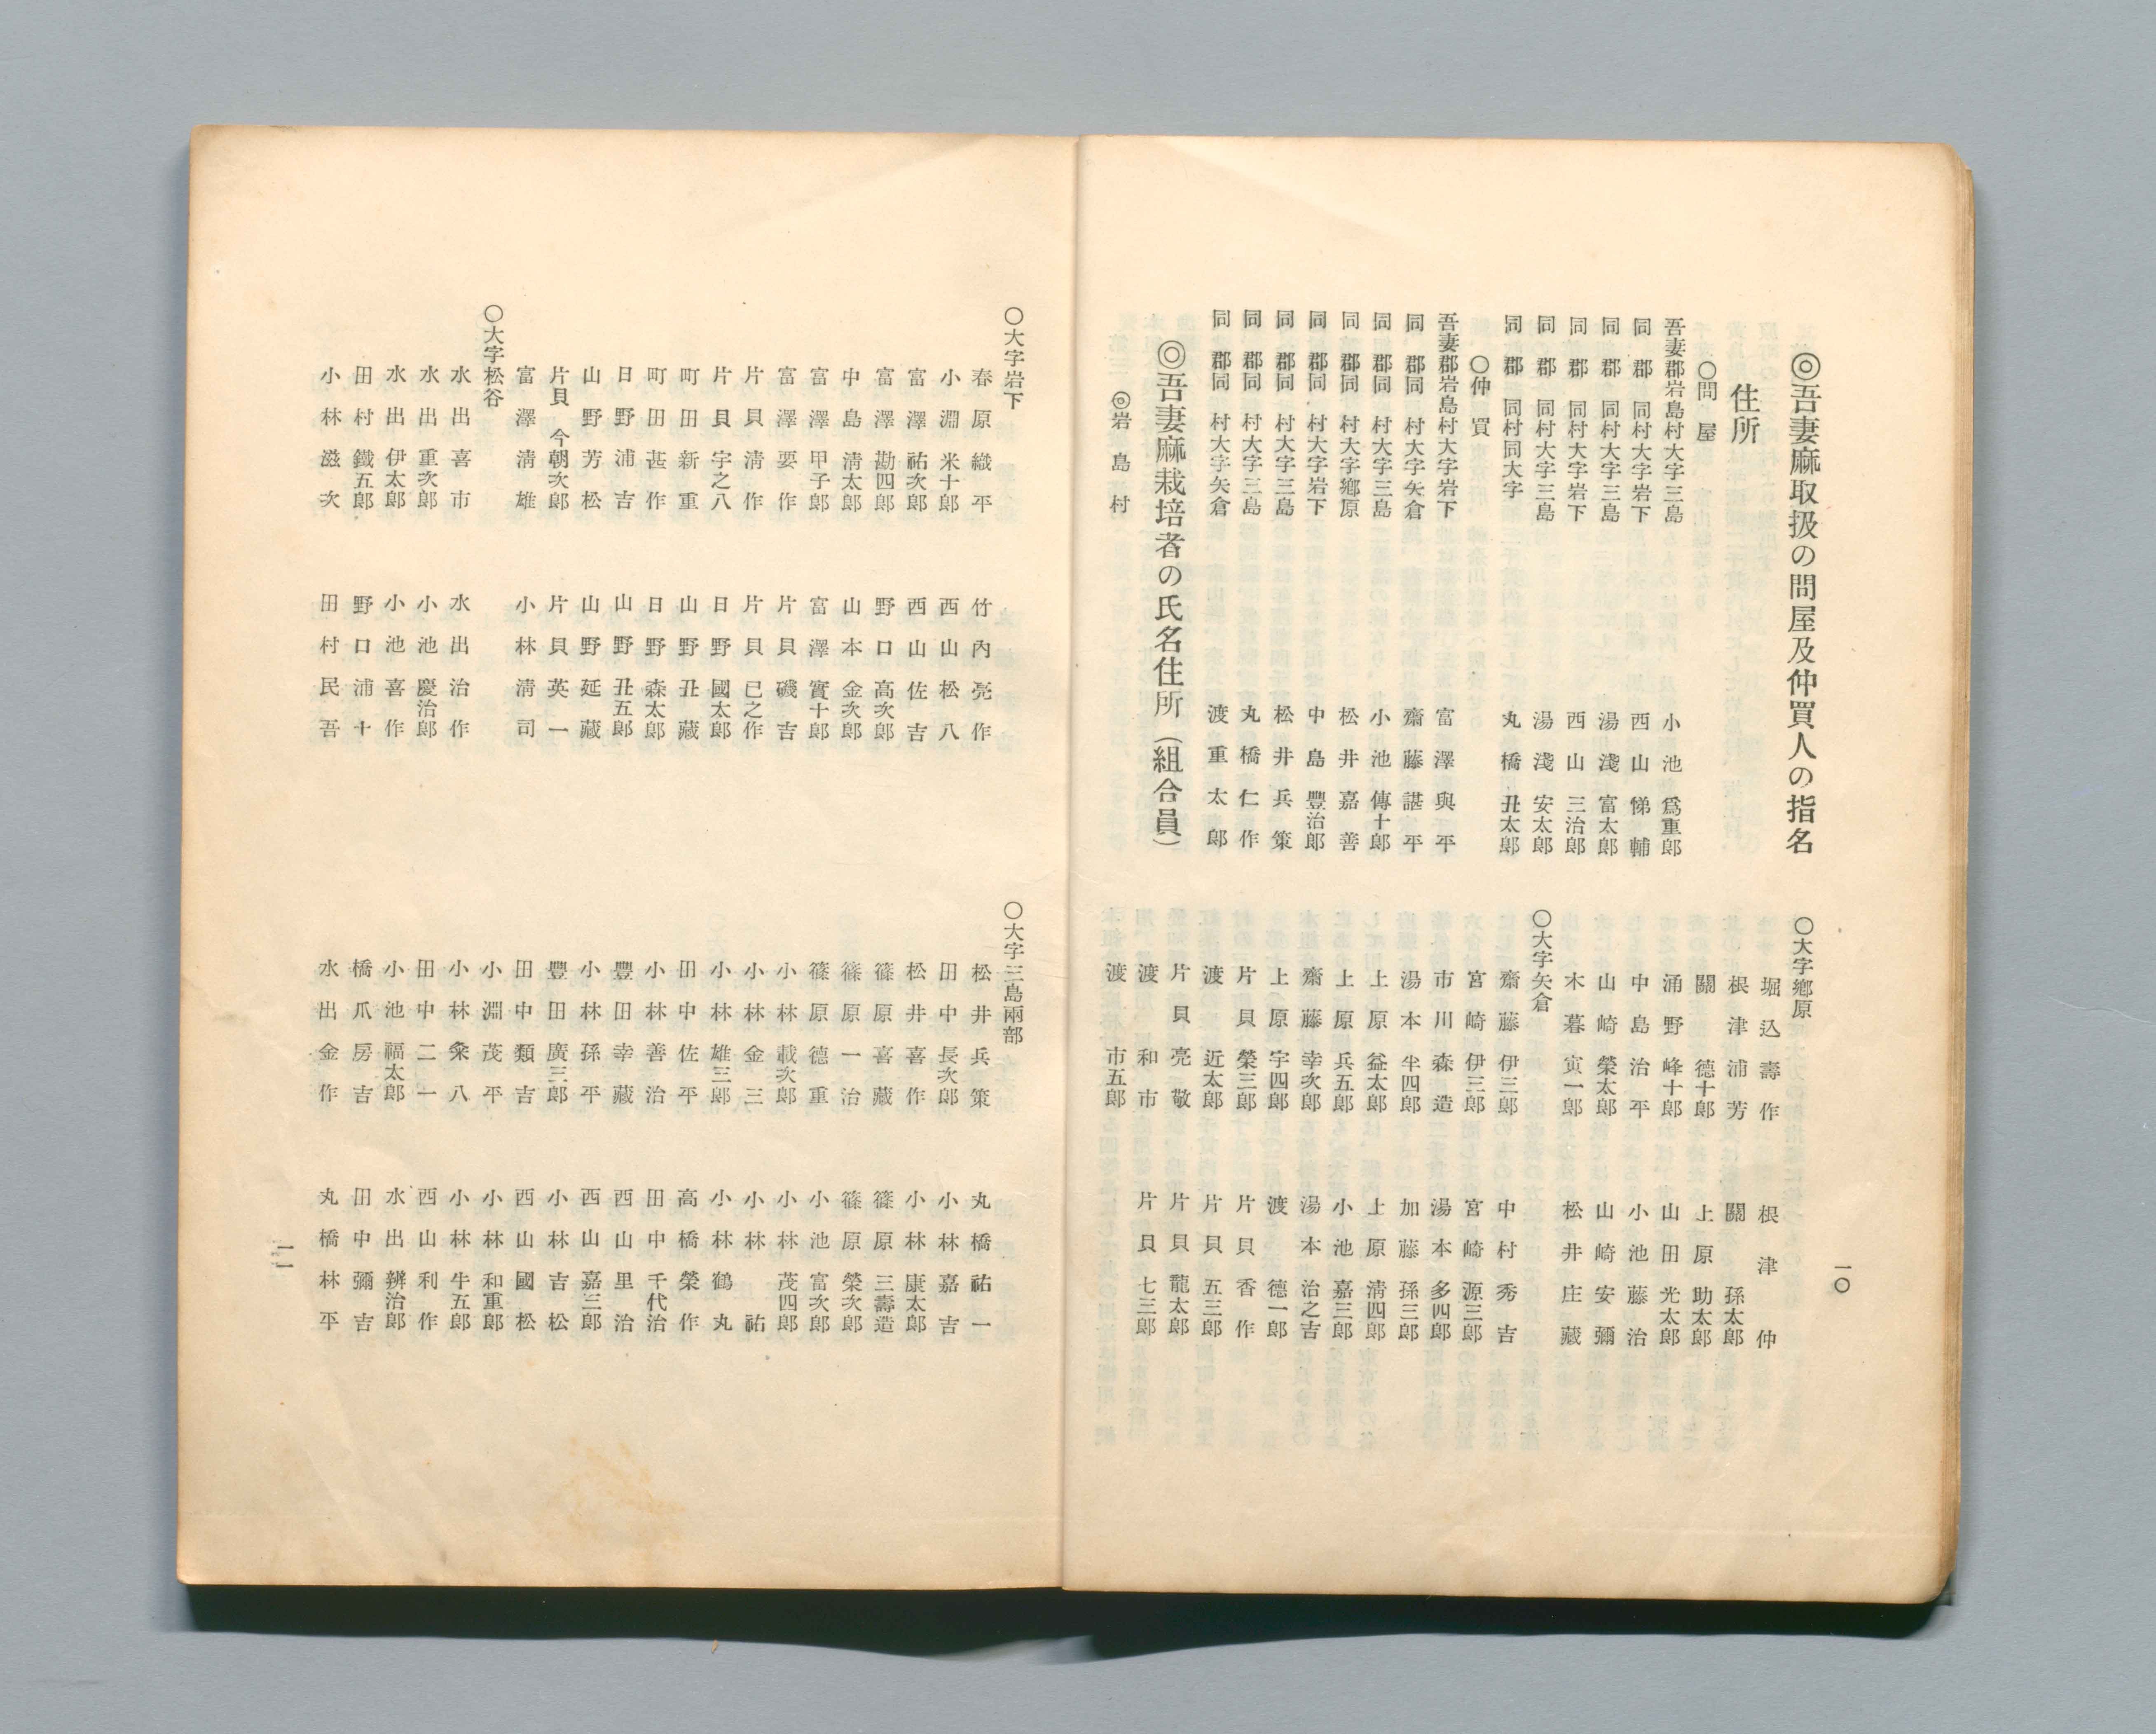 ◎吾妻麻取扱の問屋及仲買人の指名
住所
〇問屋
吾妻郡岩島村大字三島 小池爲重郎
同郡同村大字岩下 西山悌輔
同郡同村大字三島 湯淺富太郎
同郡同村大字岩下 西山三治郎
同郡同村大字三島 湯淺安太郎
同郡同村同大字 丸橋丑太郎
〇仲買
吾妻郡岩島村大字岩下 富澤與平
同郡同村大字矢倉 齋藤諶平
同郡同村大字三島 小池傳十郎
同郡同村大字鄕原 松井嘉善
同郡同村大字岩下 中島豐治郎
同郡同村大字三島 松井兵策
同郡同村大字三島 丸橋仁作
同郡同村大字矢倉 渡重太郎
◎吾妻麻栽培者の氏名住所（組合員）
◎岩島村
〇大字鄕原
堀込壽作 根津仲
根津浦芳 關孫太郎
關德十郎 上原助太郎
涌野峰十郎 山田光太郎
中島治平 小池藤治
山崎榮太郎 山崎安彌
木暮寅一郎 松井庄藏
〇大字矢倉
齋藤伊三郎 中村秀吉
宮崎伊三郎 宮崎源三郎
市川森造 湯本多四郎
湯本半四郎 加藤孫三郎
上原益太郎 上原淸四郎
上原兵五郎 小池嘉三郎
齋藤幸次郎 湯本治之吉
上原宇四郎 渡德一郎
片貝榮三郎 片貝香作
渡近太郎 片貝五三郎
片貝亮敬 片貝龍太郎
渡和市 片貝七三郎
渡市五郎
一〇
〇大字岩下
春原織平 竹內亮作
小淵米十郎 西山松八
富澤祐次郎 西山佐吉
富澤勘四郎 野口高次郎
中島淸太郎 山本金次郎
富澤甲子郎 富澤實十郎
富澤要作 片貝磯吉
片貝淸作 片貝巳之作
片貝宇之八 日野國太郎
町田新重 山野丑藏
町田甚作 日野森太郎
日野浦吉 山野丑五郎
山野芳松 山野延藏
片貝今朝次郎 片貝英一
富澤淸雄 小林淸司
〇大字松谷
水出喜市 水出治作
水出重次郎 小池慶治郎
水出伊太郎 小池喜作
田村鐵五郎 野口浦十
小林滋次 田村民吾
〇大字三島兩部
松井兵策 丸橋祐一
田中長次郎 小林嘉吉
松井喜作 小林康太郎
篠原喜藏 篠原三壽造
篠原一治 篠原榮次郎
篠原德重 小池富次郎
小林載次郎 小林茂四郎
小林金三 小林祐
小林雄三郎 小林鶴丸
田中佐平 高橋榮作
小林善治 田中千代治
豐田幸藏 西山里治
小林孫平 西山嘉三郎
豐田廣三郎 小林吉松
田中類吉 西山國松
小淵茂平 小林和重郎
小林粂八 小林牛五郎
田中二一 西山利作
小池福太郎 水出辨治郎
橋爪房吉 田中彌吉
水出金作 丸橋林平
一一